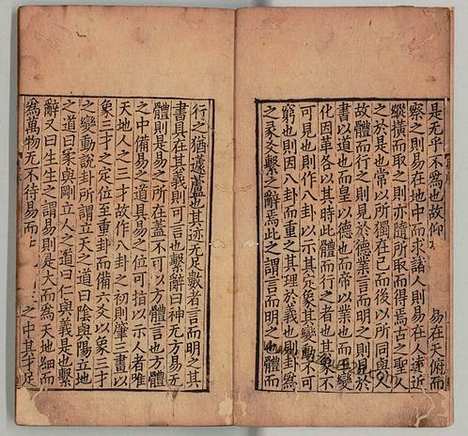 是无乎不為也故仰 易在天俯而
察之則易在地中而求諸人則易在人遠近
縱橫而取之則亦隨所取而得焉古之聖人
之於是也常以所獨在己而後以所同與人
故體而行之則見於德業言而明之則見於
書以道也而皇以德也而帝以業也而王變
化因革各以其時此無他易之為也其象不
可見也則作八卦以示其定象其變動不
窮也則因八卦而重之其理於義也則卦為
之彖爻繫之辭焉此之謂言而明之也體而
行之猶蘧廬也其迹无足數者言而明之其
書具在其義則可言也繫辭曰神无方易无
體則是易之所在蓋不可以體言也方體
之中備易之道具易之位可指以示人者唯
天地人之三才故作八卦之初則肇三畫以
象三才之定位至重卦而備六爻以象三才
之變動說卦所謂立天之道曰陰與陽立地
之道曰柔與剛立人之道曰仁與義是也繫
辭又曰生生之謂易則是大而為天地細而
為萬物无不待易而 之中其才足